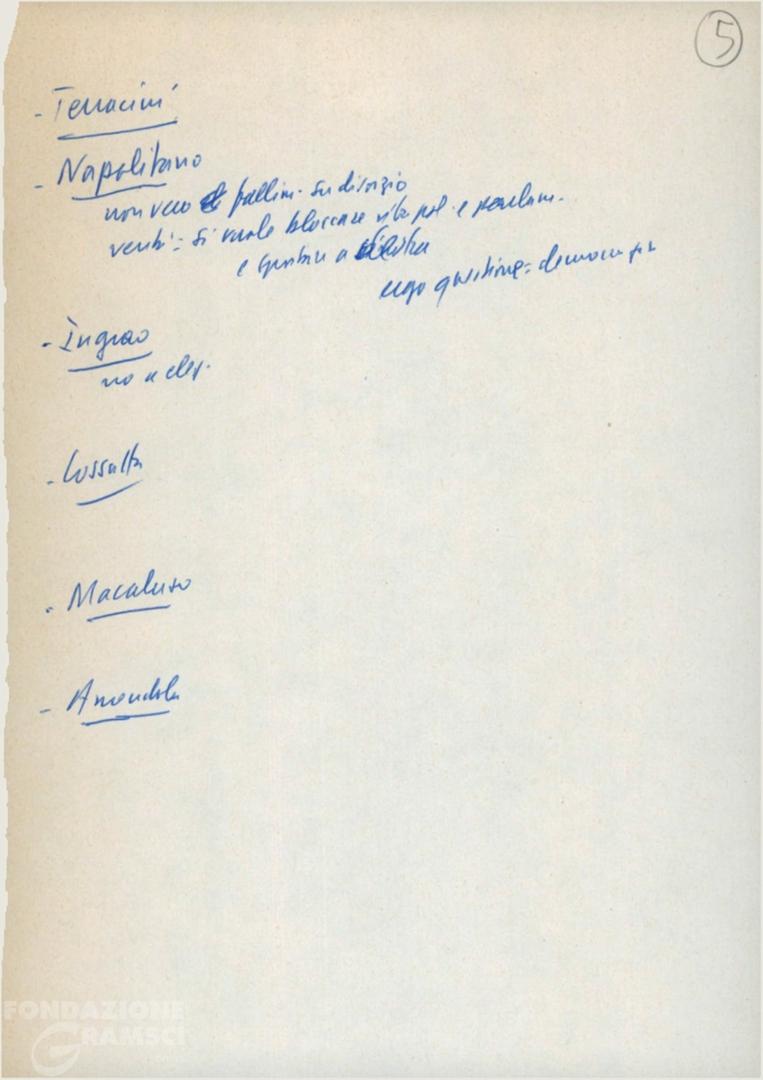 5
- Terracini
- Napolitano
non vero fallim. su divorzio
verità: si vuole bloccare vita pol. e parlam.
e spostare a destra
ergo questione =
- Ingrao
no a elez.
- Cossutta
- Macaluso
- Amendola
FONDAZIONE
GRAMSCI